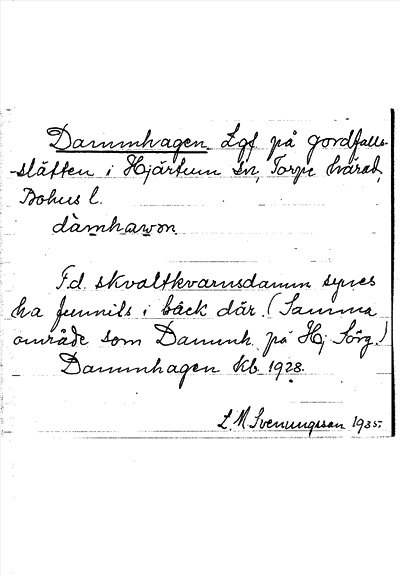 Dammhagen Lgf på gordfalls-
-slätten i Hjärtum sn, Torpe härad,
Bohus l.
dàmhawən.
F.d. skvaltkvarnsdamm synes
ha funnits i bäck där. (Samma
område som Dammh. på Hj Sörg.)
Dammhagen kb 1928.
L. M Svenungsson 1935.